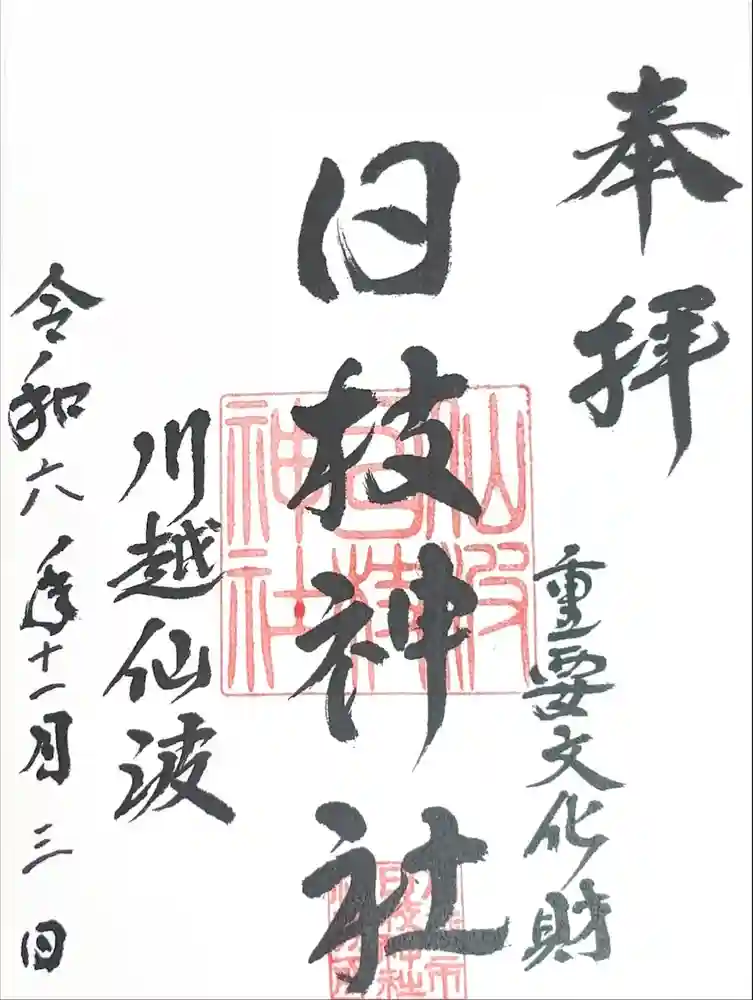 奉拝
重要文化財
日枝神社
仙波
日枝
神社
川越仙波
令和六年十一月三日